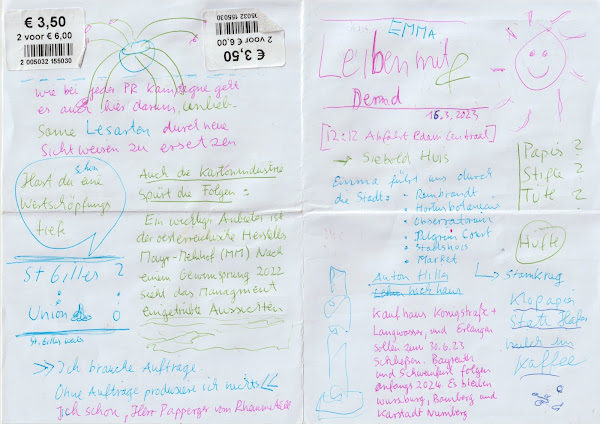 € 3,50
2 voor € 6,00
2 005032 155030
2 005032 155030
2 voor € 6,00
€ 3,50
Wie bei jeder PR Kampagne geht
es auch hier darum, unlieb-
same Lesarten durch neue
Sichtweisen zu ersetzen
Hast du schon eine
Wertschöpfungs
tiefe
St Gilles ?
:
Union 0
St. Gilles
Auch die Kartonindustrie
spürt die Folgen:
Ein wichtiger Anbieter ist
der oesterreichische Hersteller
Mayr-Melnhof (MM) Nach
einem Gewinnsprung 2022
sieht das Managment
eingetrübte Aussichten
>> Ich brauche Aufträge
Ohne Aufträge produziere ich nichts <<
Ich schon, Herr Papperger von Rheinmetall
EMMA
Leiben mit
&
Dernd
16.3.2023
[12:12 Abfahrt Edam Centraal]
→ Siebold Huis
Emma führt uns durch
die Stadt:
• Rembrandt
• Hortus botanicus
• Observatorium
• Pilgrim Court
• Stadshuis
• Market
Papis ?
Stifte ?
Tüte ?
Hüfte
Anton Hiller
→ Stammkrug
Kaufhaus Königstraße +
Langwasser, und Erlangen
sollen zum 30.6.23
Schließen. Bayreuth
und Schweinfurt folgen
anfangs 2024. Es bleiben
würzburg, Bamberg und
Karstadt Nürnberg
Klopapier
Statt Hafer
milch im
Kaffee